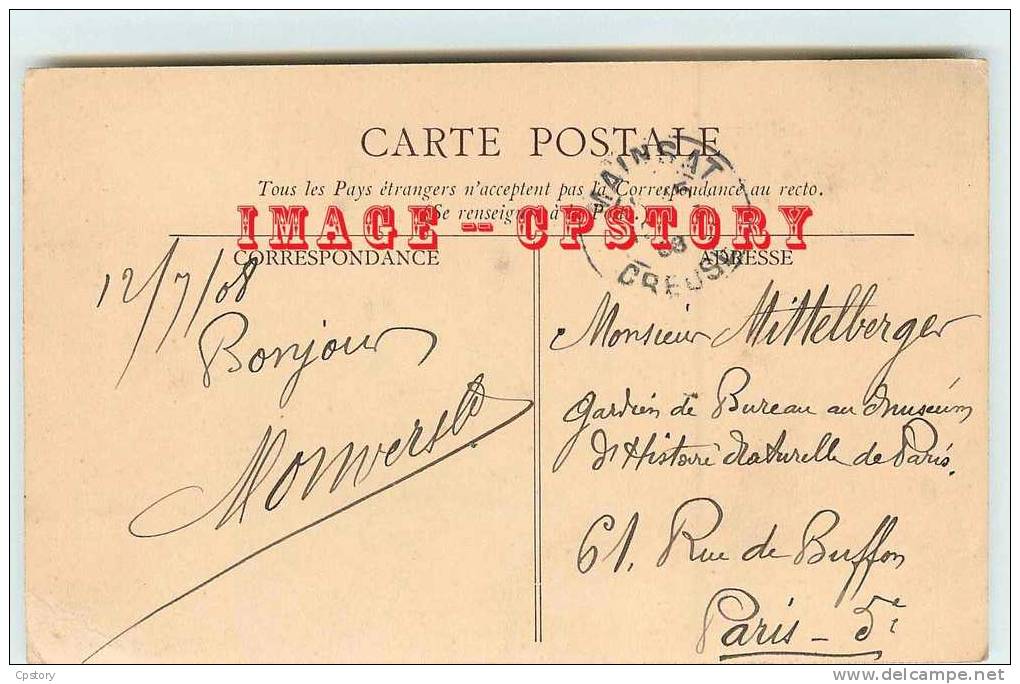 CARTE POSTALE
Tous les Pays étrangers n'acceptent pas la Correspondance au recto.
Se renseigner à la Poste.)
MAINSAT
08
CREUSE
IMAGE -- CPSTORY
CORRESPONDANCE
12/7/08
Bonjour
ADRESSE
Monsieur Mittelberger
Gardien de Bureau au Muséum
d'Histoire Naturelle de Paris.
61, Rue de Buffon
Paris - 5e
Cpstory
delcampe.net